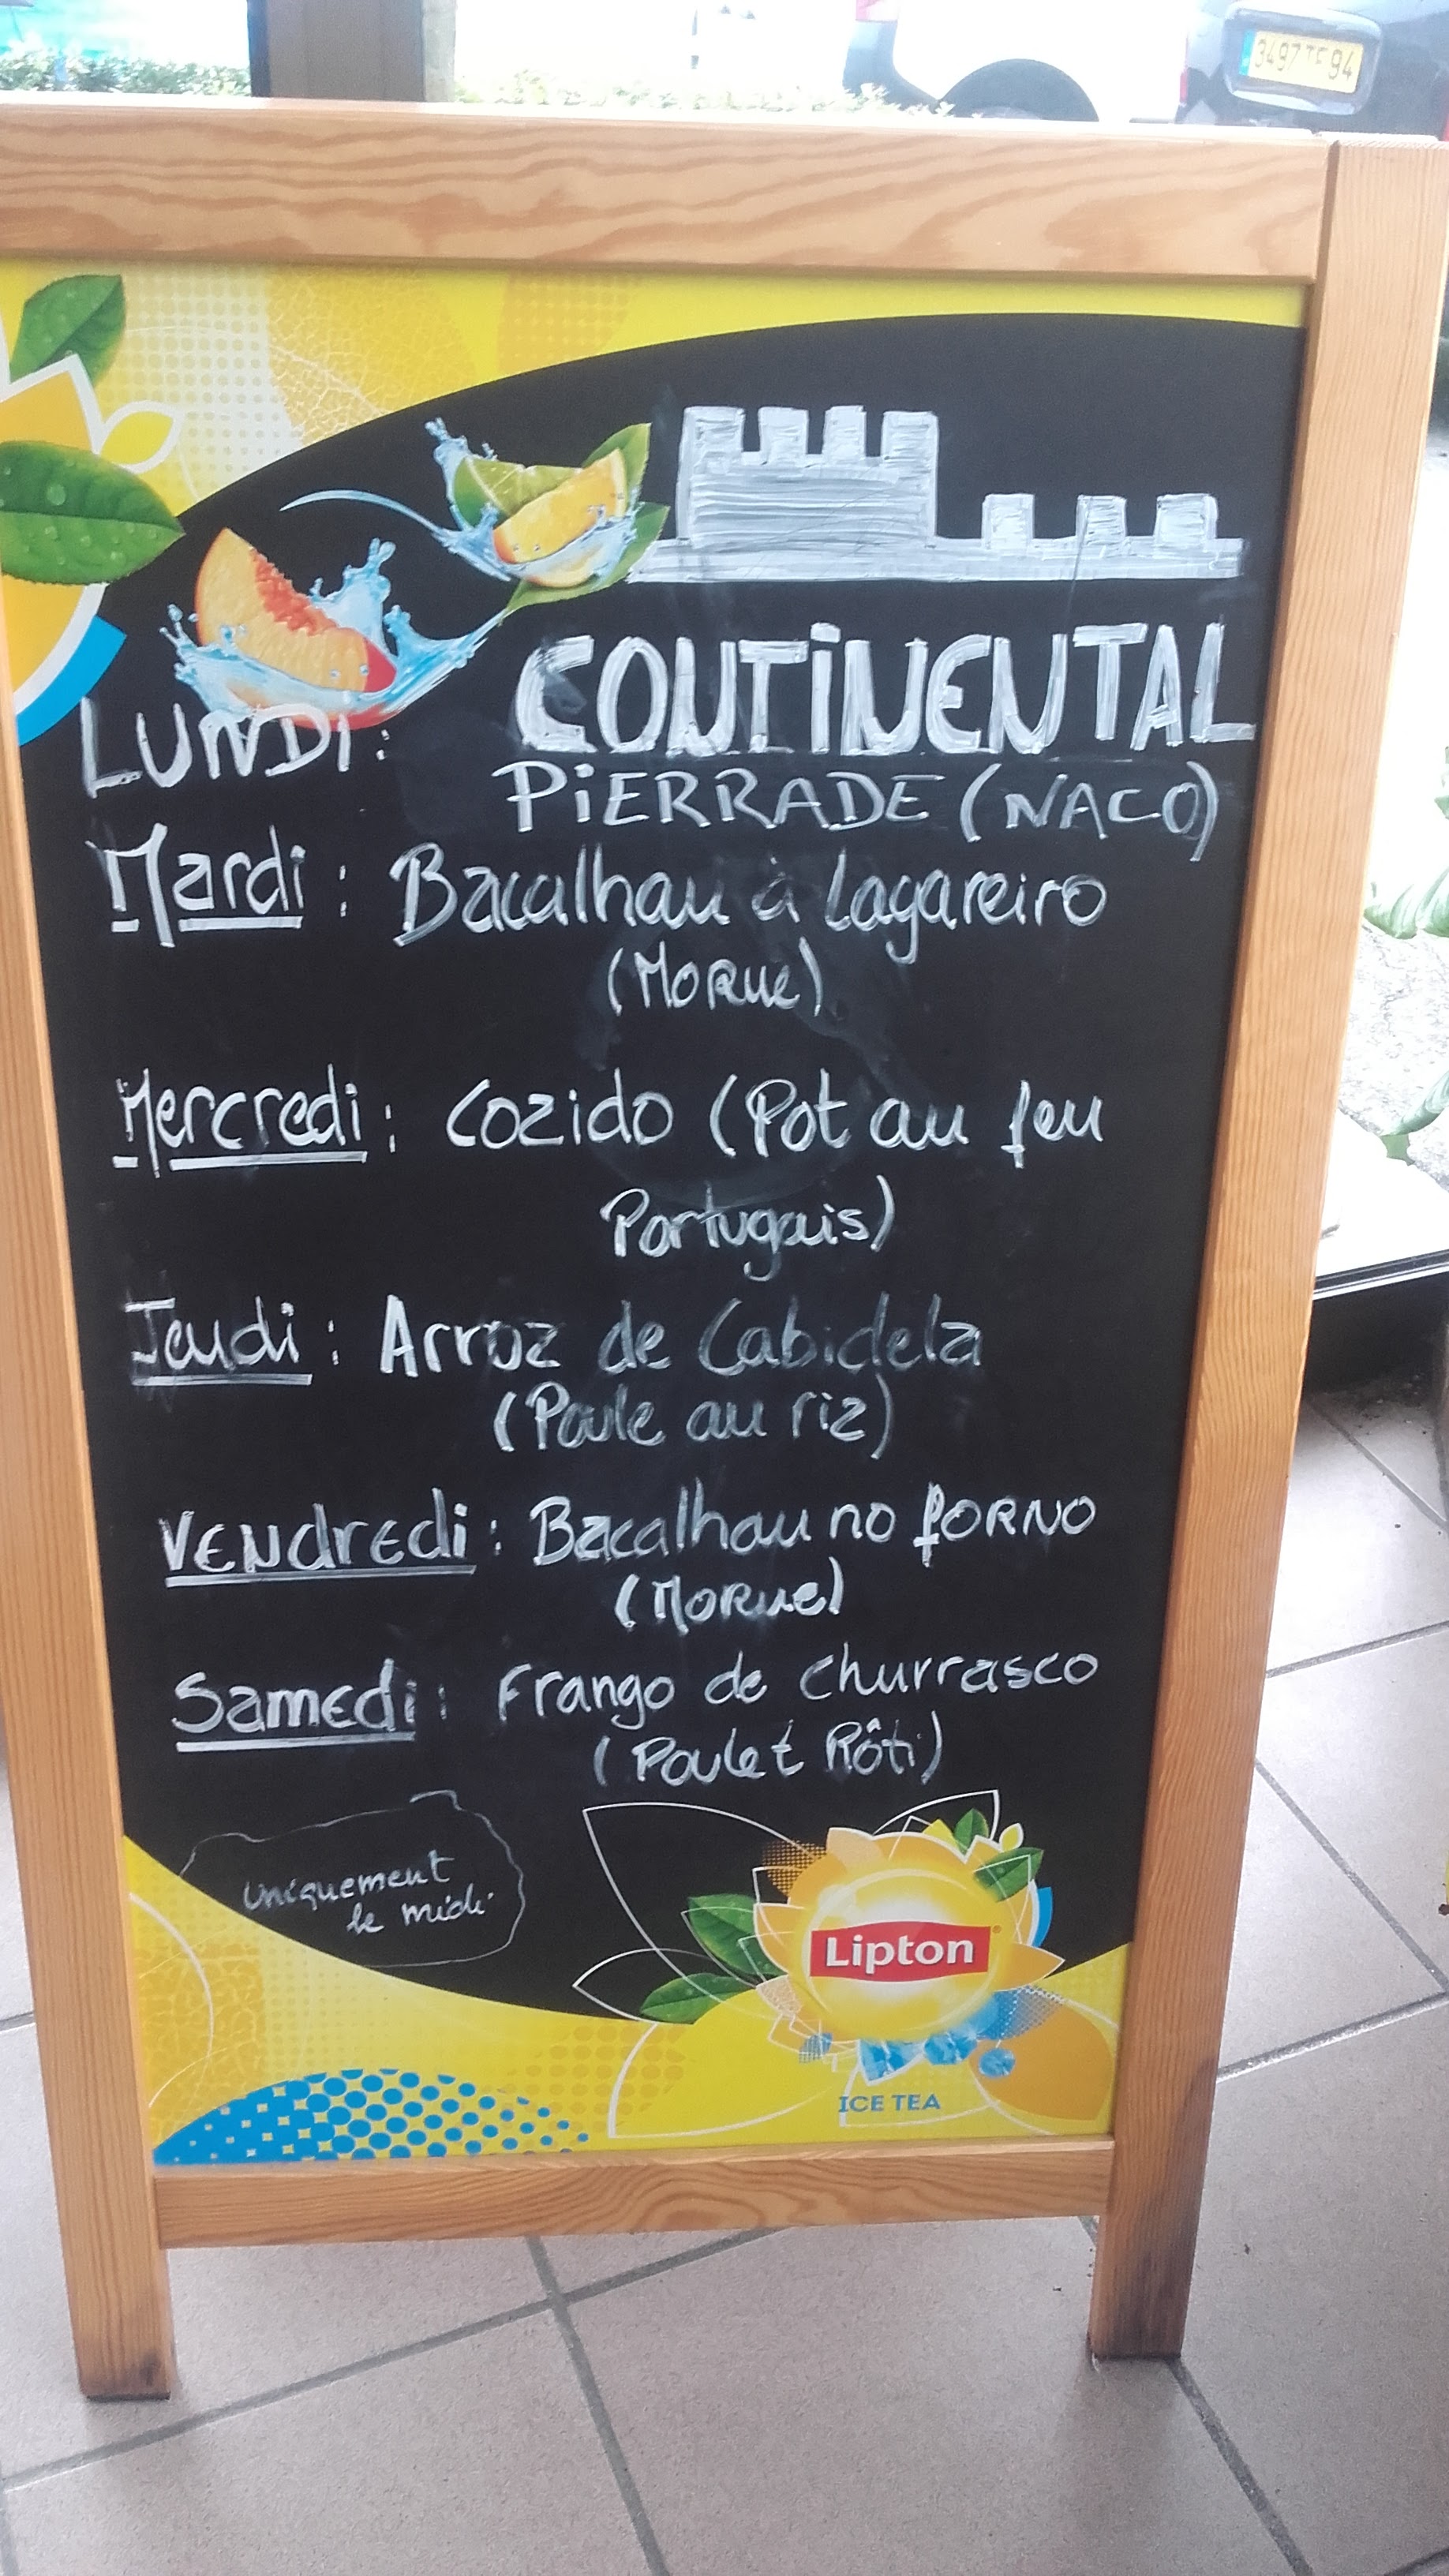 3497 TF 94
CONTINENTAL
LUNDI:
PIERRADE (NACO)
Mardi : Bacalhau à Lagareiro
(MORue)
Mercredi : Cozido (Pot au feu
Portugais)
Jeudi : Arroz de Cabidela
(Poule au riz)
Vendredi : Bacalhau no forno
(MORue)
Samedi : Frango de churrasco
(Poulet Rôti)
uniquement
le midi
Lipton
ICE TEA